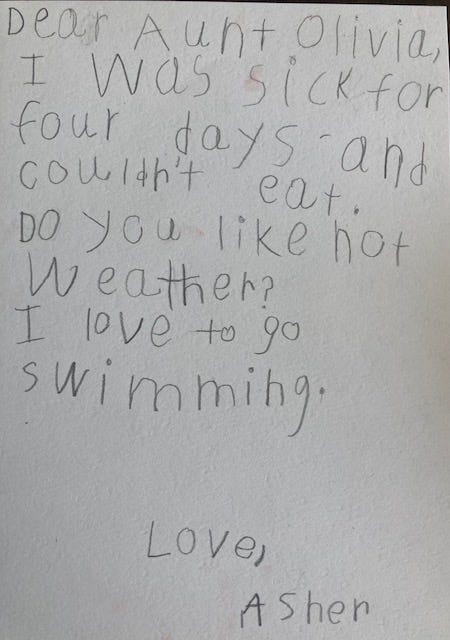 Dear Aunt Olivia,
I was sick for
four days - and
couldn't eat.
Do you like hot
Weather?
I love to go
swimming.
Love,
Asher